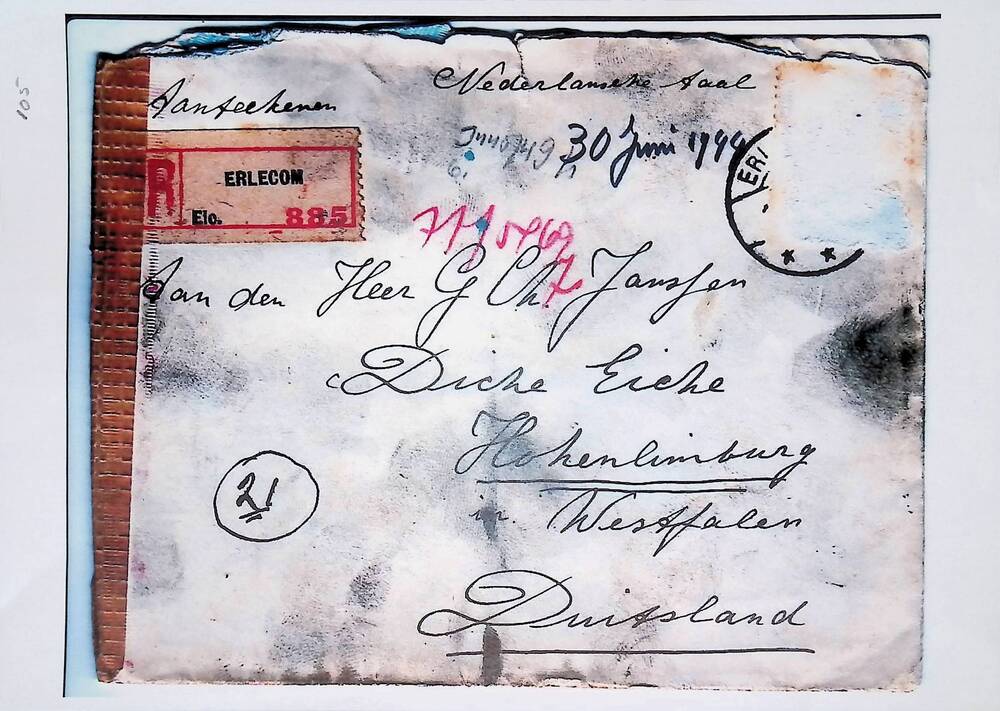 105
Nederlansche taal
Aanteekenen
30 Juni 1944
R
ERLECOM
Elc. 885
ER
Aan den Heer G Chr Janssen
Dicke Eicke
Hohenlimburg
in Westfalen
21
Duitsland